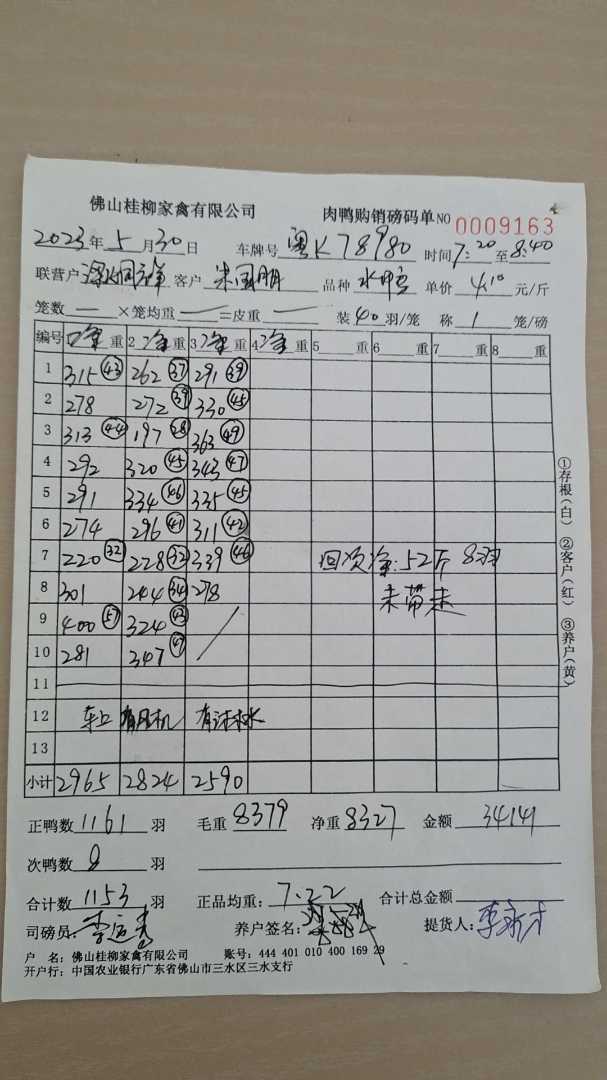 佛山桂柳家禽有限公司 肉鸭购销磅码单 NO 0009163
2023年5月30日 车牌号 粤K78980 时间 7:20 至 8:40
联营户 客户 朱国朋 品种 单价 4.10 元/斤
笼数 — ×笼均重 — =皮重 — 装 40 羽/笼 称 1 笼/磅
编号 1 净重 2 净重 3 净重 4 净重 5 重 6 重 7 重 8 重
1 315 (43) 262 (37) 291 (39)
2 278 272 (39) 330 (45)
3 313 (44) 197 (28) 363 (49)
4 292 320 (45) 343 (47)
5 291 334 (46) 335 (45)
6 274 296 (41) 311 (42)
7 220 (32) 228 (32) 339 (46) 回次净:52斤 8羽
8 301 244 (34) 278 未带走
9 400 (57) 324 (43)
10 281 347 (47)
11
12 车上有风机 有淋水
13
小计 2965 2824 2590
①存根(白) ②客户(红) ③养户(黄)
正鸭数 1161 羽 毛重 8379 净重 8327 金额 34141
次鸭数 8 羽
合计数 1153 羽 正品均重: 7.22 合计总金额
司磅员: 养户签名: 提货人:
户 名: 佛山桂柳家禽有限公司 账号: 444 401 010 400 169 29
开户行: 中国农业银行广东省佛山市三水区三水支行